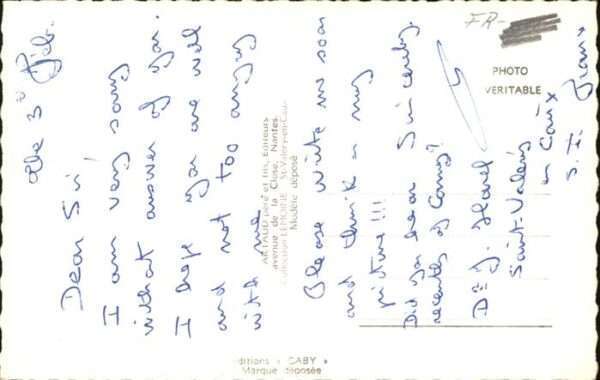 the 3d Feb.
Dear Sir,
I am very sorry
without answer of you.
I hope you are well
and not too angry
with me.
Please write me soon
and think on my
picture !!!
Did you hear
recently of
Sincerely,
Dr J.
Saint-Valéry
en Caux
S. I. France
FR-
PHOTO
VERITABLE
ARTAUD père et fils, Editeurs
avenue de la Close, Nantes
Collection LEMOINE St-Valery-en-Caux
Modèle déposé
Editions « GABY »
Marque déposée